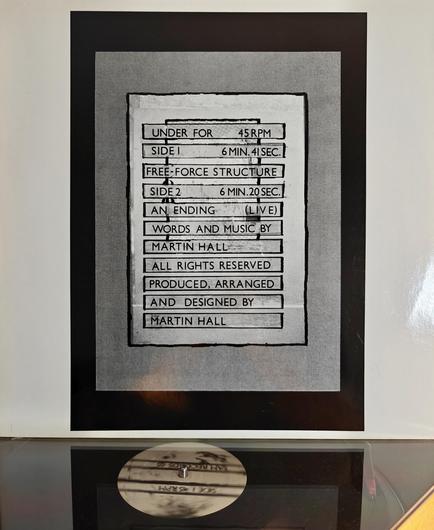 UNDER FOR 45 RPM
SIDE 1 6 MIN. 41 SEC.
FREE-FORCE STRUCTURE
SIDE 2 6 MIN. 20 SEC.
AN ENDING (LIVE)
WORDS AND MUSIC BY
MARTIN HALL
ALL RIGHTS RESERVED
PRODUCED, ARRANGED
AND DESIGNED BY
MARTIN HALL